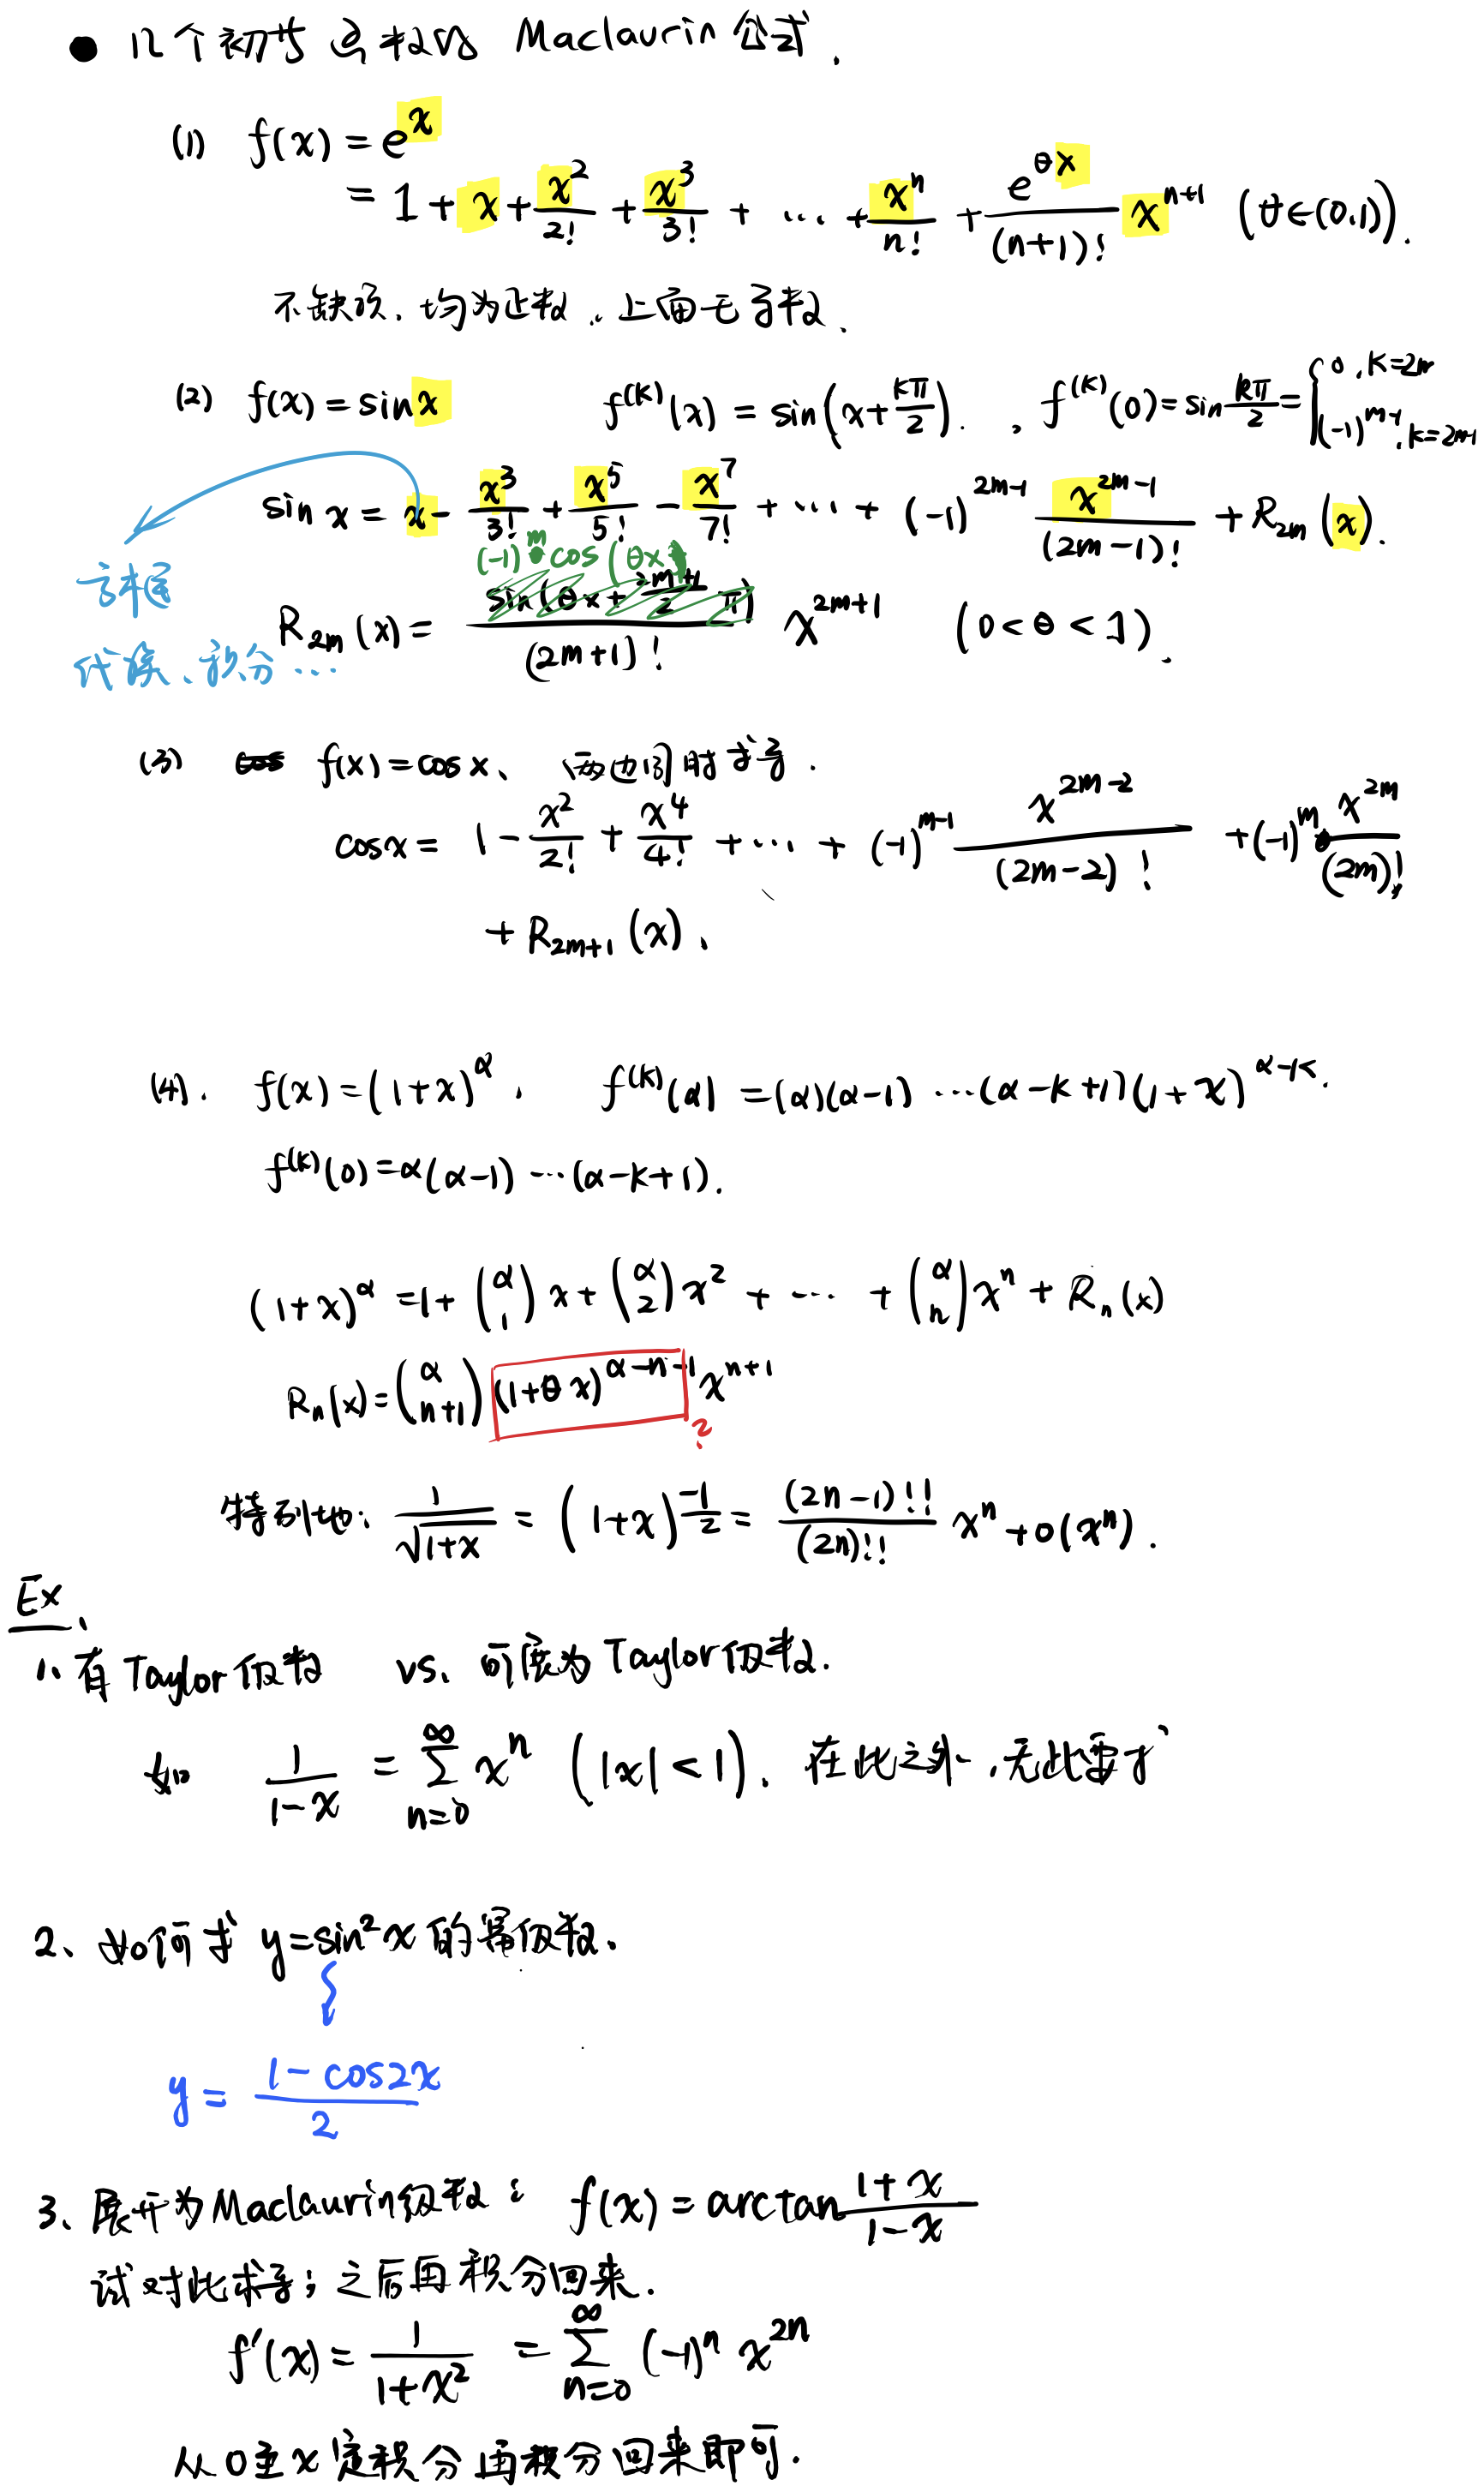 ● 几个初等函数的 Maclaurin 公式.
(1) f(x) = e^x
= 1 + x + x^2/2! + x^3/3! + … + x^n/n! + e^{θx}/(n+1)! x^{n+1} (θ∈(0,1)).
不缺项、均为正数.上面无系数、
(2) f(x) = sin x f^{(k)}(x) = sin(x + kπ/2). , f^{(k)}(0) = sin kπ/2 = { 0, k=2m (-1)^{m-1}, k=2m-1
sin x = x - x^3/3! + x^5/5! - x^7/7! + … + (-1)^{2m-1} x^{2m-1}/(2m-1)! + R_{2m}(x).
(-1)^m cos(θx)
R_{2m}(x) = sin(θx + 2m+1/2 π)/(2m+1)! x^{2m+1} (0<θ<1).
代换、积分…
(3) cos f(x) = cos x、 两边同时求导.
cos x = 1 - x^2/2! + x^4/4! + … + (-1)^{m-1} x^{2m-2}/(2m-2)! + (-1)^m x^{2m}/(2m)!
+ R_{2m+1}(x)、
(4). f(x) = (1+x)^α, f^{(k)}(α) = (α)(α-1)…(α-k+1)(1+x)^{α-k}.
f^{(k)}(0) = α(α-1)…(α-k+1).
(1+x)^α = 1 + (α 1) x + (α 2) x^2 + … + (α n) x^n + R_n(x)
R_n(x) = (α n+1) (1+θx)^{α-n-1} x^{n+1} ?
特别地: 1/√(1+x) = (1+x)^{-1/2} = (2n-1)!!/(2n)!! x^n + o(x^n).
Ex、
1、有 Taylor 级数 vs、可展为 Taylor 级数.
如 1/(1-x) = ∑_{n=0}^∞ x^n (|x|<1)、在此之外,无此展式
2、如何求 y = sin^2 x 的幂级数、
y = (1 - cos2x)/2
3、展开为 Maclaurin 级数: f(x) = arctan (1+x)/(1-x)
试对此求导;之后再积分回来.
f'(x) = 1/(1+x^2) = ∑_{n=0}^∞ (-1)^n x^{2n}
从 0 至 x 定积分再积分回来即可.